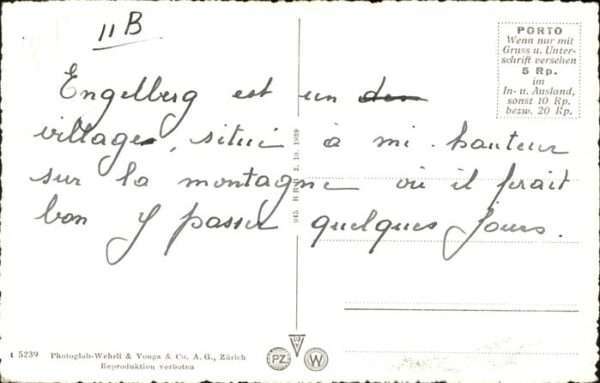 11 B
PORTO
Wenn nur mit
Gruss u. Unter-
schrift versehen
5 Rp.
im
In- u. Ausland,
sonst 10 Rp.
bezw. 20 Rp.
Engelberg est un des
village, situé à mi-hauteur
sur la montagne où il ferait
bon y passer quelques jours.
2. 10. 1939
5239 Photoglob-Wehrli & Vouga & Co. A. G., Zürich
Reproduktion verboten
PZ W